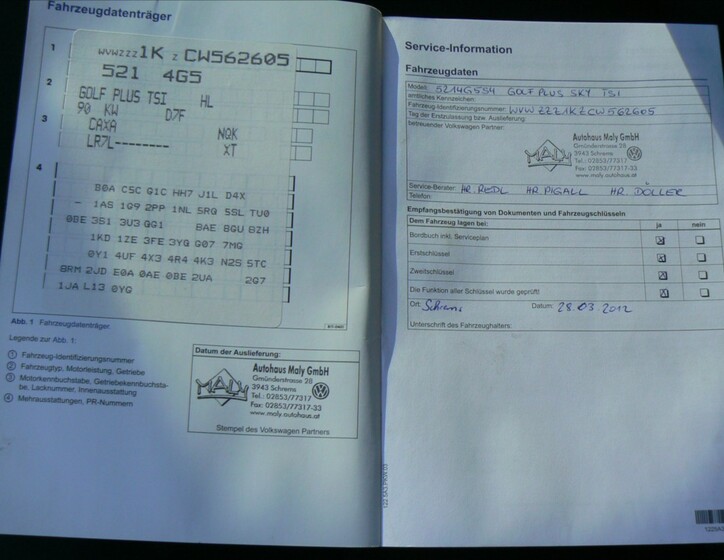 Fahrzeugdatenträger
1
WVWZZZ1K Z CW562605
521 4G5
2
GOLF PLUS TSI HL
90 KW D7F
3
CAXA NQK
LR7L--------- XT
4
B0A C5C G1C HH7 J1L D4X
- 1AS 1G9 2PP 1NL 5RQ 5SL TU0
0BE 3S1 3U3 GG1 BAE 8GU 8ZH
1KD 1ZE 3FE 3YG G07 7MG
0Y1 4UF 4X3 4R4 4K3 N2S 5TC
8RM 2JD E0A 0AE 0BE 2UA 2G7
1JA L13 0YG
Abb. 1 Fahrzeugdatenträger
Legende zur Abb. 1:
① Fahrzeug-Identifizierungsnummer
② Fahrzeugtyp, Motorleistung, Getriebe
③ Motorkennbuchstabe, Getriebekennbuchsta-
be, Lacknummer, Innenausstattung
④ Mehrausstattungen, PR-Nummern
Datum der Auslieferung:
MALY
Autohaus Maly GmbH
Gmünderstrasse 28
3943 Schrems
Tel.: 02853/77317
Fax: 02853/77317-33
www.maly.autohaus.at
Stempel des Volkswagen Partners
Service-Information
Fahrzeugdaten
Modell: 5214G5S4 GOLF PLUS SKY TSI
amtliches Kennzeichen:
Fahrzeug-Identifizierungsnummer: WVWZZZ1KZCW562605
Tag der Erstzulassung bzw. Auslieferung:
betreuender Volkswagen Partner:
MALY
Autohaus Maly GmbH
Gmünderstrasse 28
3943 Schrems
Tel.: 02853/77317
Fax: 02853/77317-33
www.maly.autohaus.at
Service-Berater: HR. REDL HR. PIGALL HR. DOLLER
Telefon:
Empfangsbestätigung von Dokumenten und Fahrzeugschlüsseln
Dem Fahrzeug lagen bei: ja nein
Bordbuch inkl. Serviceplan
Erstschlüssel
Zweitschlüssel
Die Funktion aller Schlüssel wurde geprüft!
Ort: Schrems Datum: 28.03.2012
Unterschrift des Fahrzeughalters: